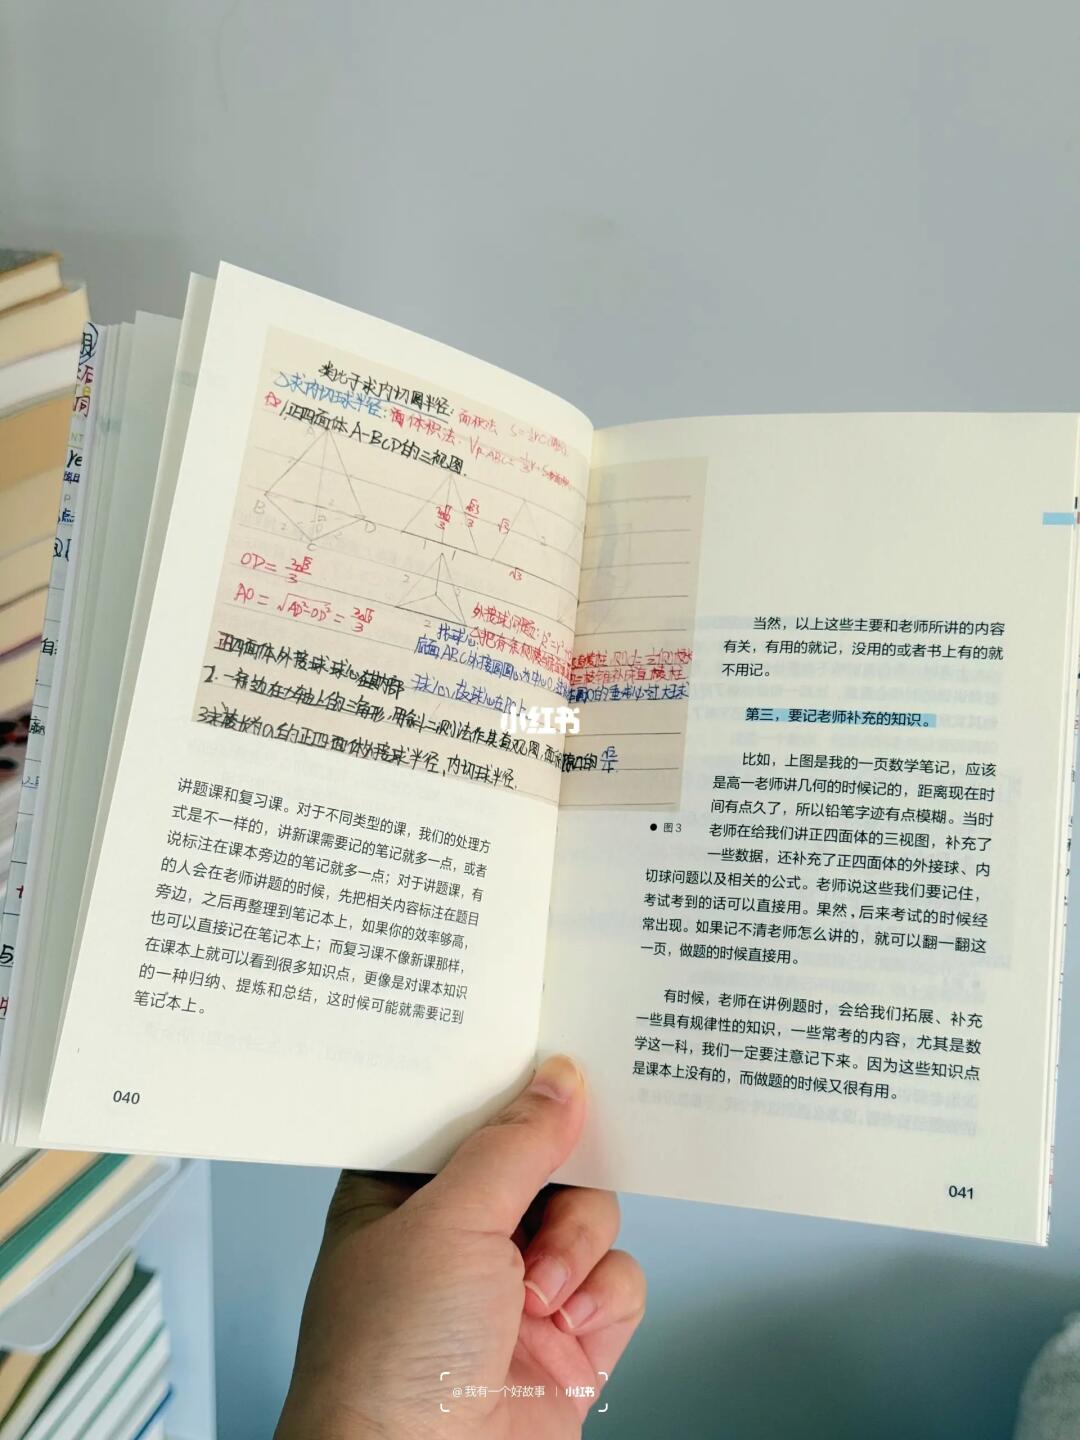 类比于求内切圆半径：面积法
求内切球半径：体积法：
1.正四面体A-BCD的三视图.
A
B
C
D
OD=
AO=
外接球问题：
找球心
底面ABC外接圆圆心为
正四面体外接球球心在其内部
2.一般边在 轴上的三角形，用斜二测法作其直观图，面积
3.求棱长为a的正四面体外接球半径，内切球半径.
小红书
讲题课和复习课。对于不同类型的课，我们的处理方
式是不一样的，讲新课需要记的笔记就多一点，或者
说标注在课本旁边的笔记就多一点；对于讲题课，有
的人会在老师讲题的时候，先把相关内容标注在题目
旁边，之后再整理到笔记本上，如果你的效率够高，
也可以直接记在笔记本上；而复习课不像新课那样，
在课本上就可以看到很多知识点，更像是对课本知识
的一种归纳、提炼和总结，这时候可能就需要记到
笔记本上。
040
● 图3
当然，以上这些主要和老师所讲的内容
有关，有用的就记，没用的或者书上有的就
不用记。
第三，要记老师补充的知识。
比如，上图是我的一页数学笔记，应该
是高一老师讲几何的时候记的，距离现在时
间有点久了，所以铅笔字迹有点模糊。当时
老师在给我们讲正四面体的三视图，补充了
一些数据，还补充了正四面体的外接球、内
切球问题以及相关的公式。老师说这些我们要记住，
考试考到的话可以直接用。果然，后来考试的时候经
常出现。如果记不清老师怎么讲的，就可以翻一翻这
一页，做题的时候直接用。
有时候，老师在讲例题时，会给我们拓展、补充
一些具有规律性的知识，一些常考的内容，尤其是数
学这一科，我们一定要注意记下来。因为这些知识点
是课本上没有的，而做题的时候又很有用。
041
@我有一个好故事 | 小红书